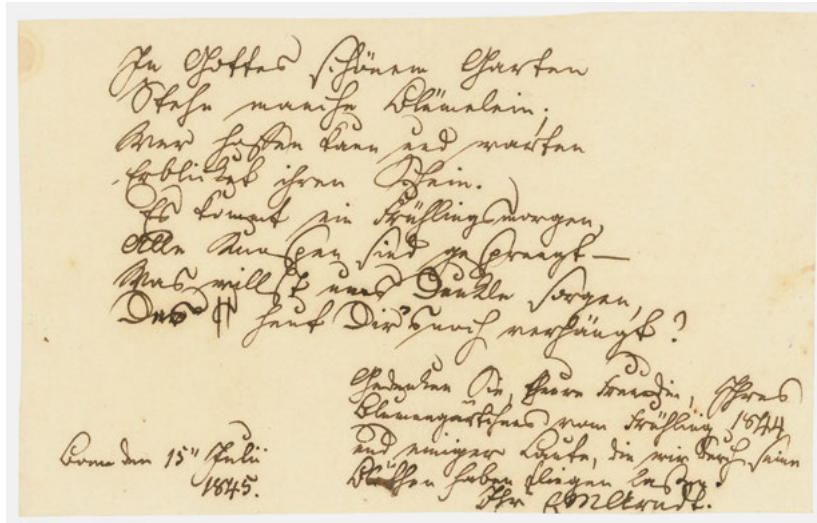 In Gottes schönem Garten
Stehn manche Blümelein;
Wer hoffen kann und warten
Erblicket ihren Schein.
Es kommt ein Frühlingsmorgen,
Alle Knospen sind gesprengt —
Was willst ums Dunkle sorgen,
Das heut Dir's noch verhängt?
Gedenken Sie, theure Freundin, Ihres
Blumengärtchens vom Frühling 1844
und einiger Laute, die wir durch seine
Blüthen haben fliegen lassen.
Ihr EMArndt.
Bonn den 15" Julii
1845.